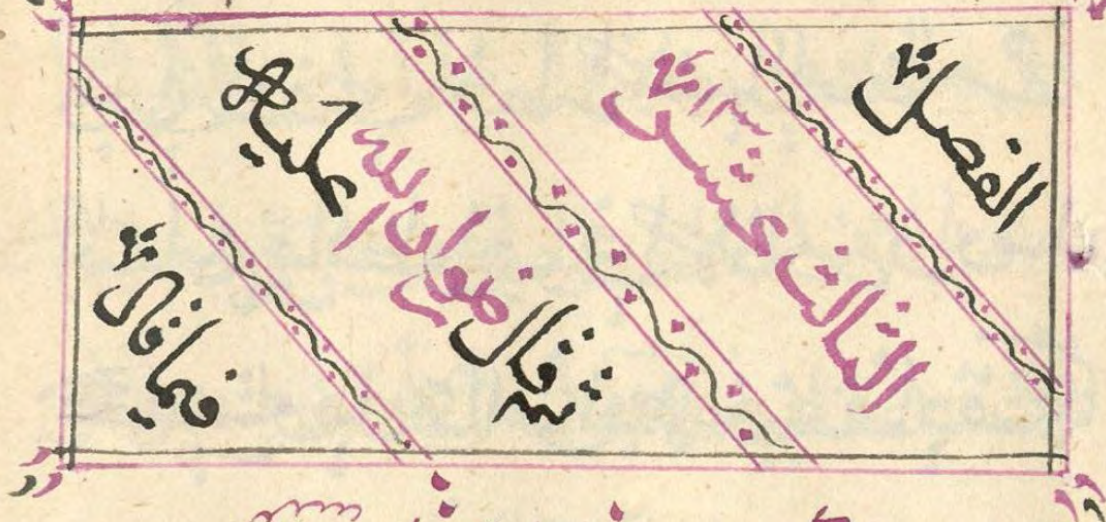 الفصل
الثالث عشر
ثم قال رضوان الله عليه
فيما قال